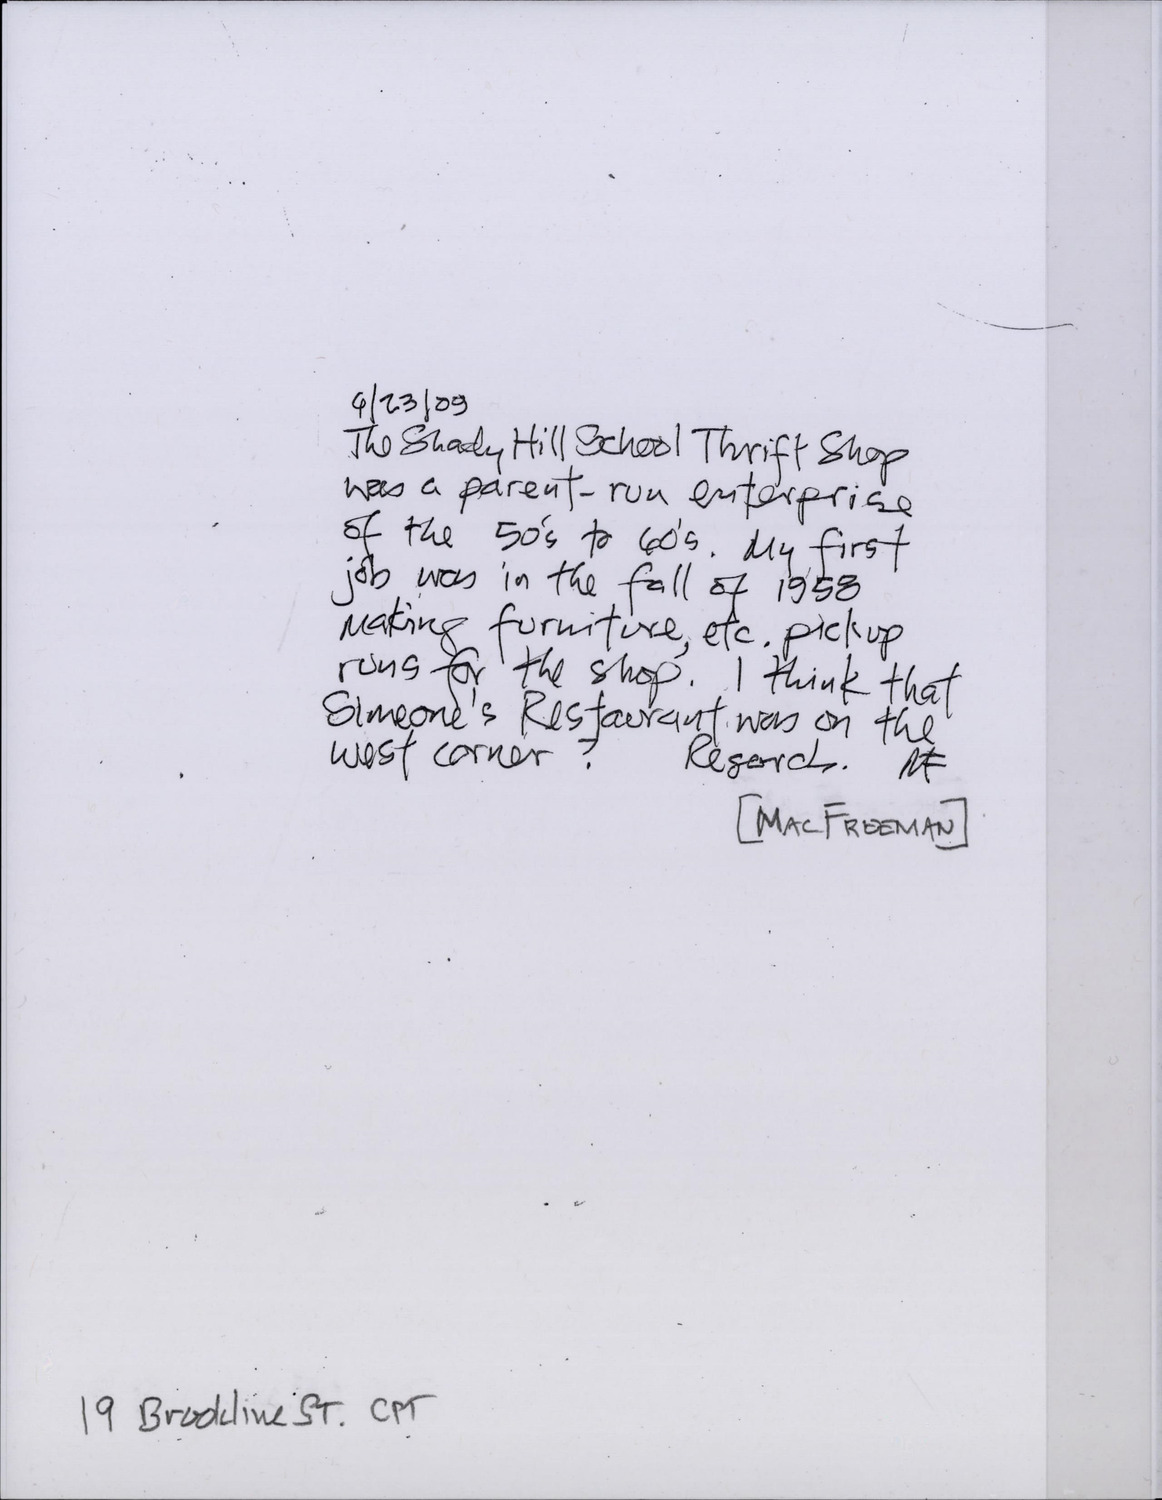 4/23/09
The Shady Hill School Thrift Shop
was a parent-run enterprise
of the 50's to 60's. My first
job was in the fall of 1958
making furniture, etc. pickup
runs for the shop. I think that
Simeone's Restaurant was on the
west corner? Research. MF
[MAC FREEMAN]
19 Brookline ST. CPT